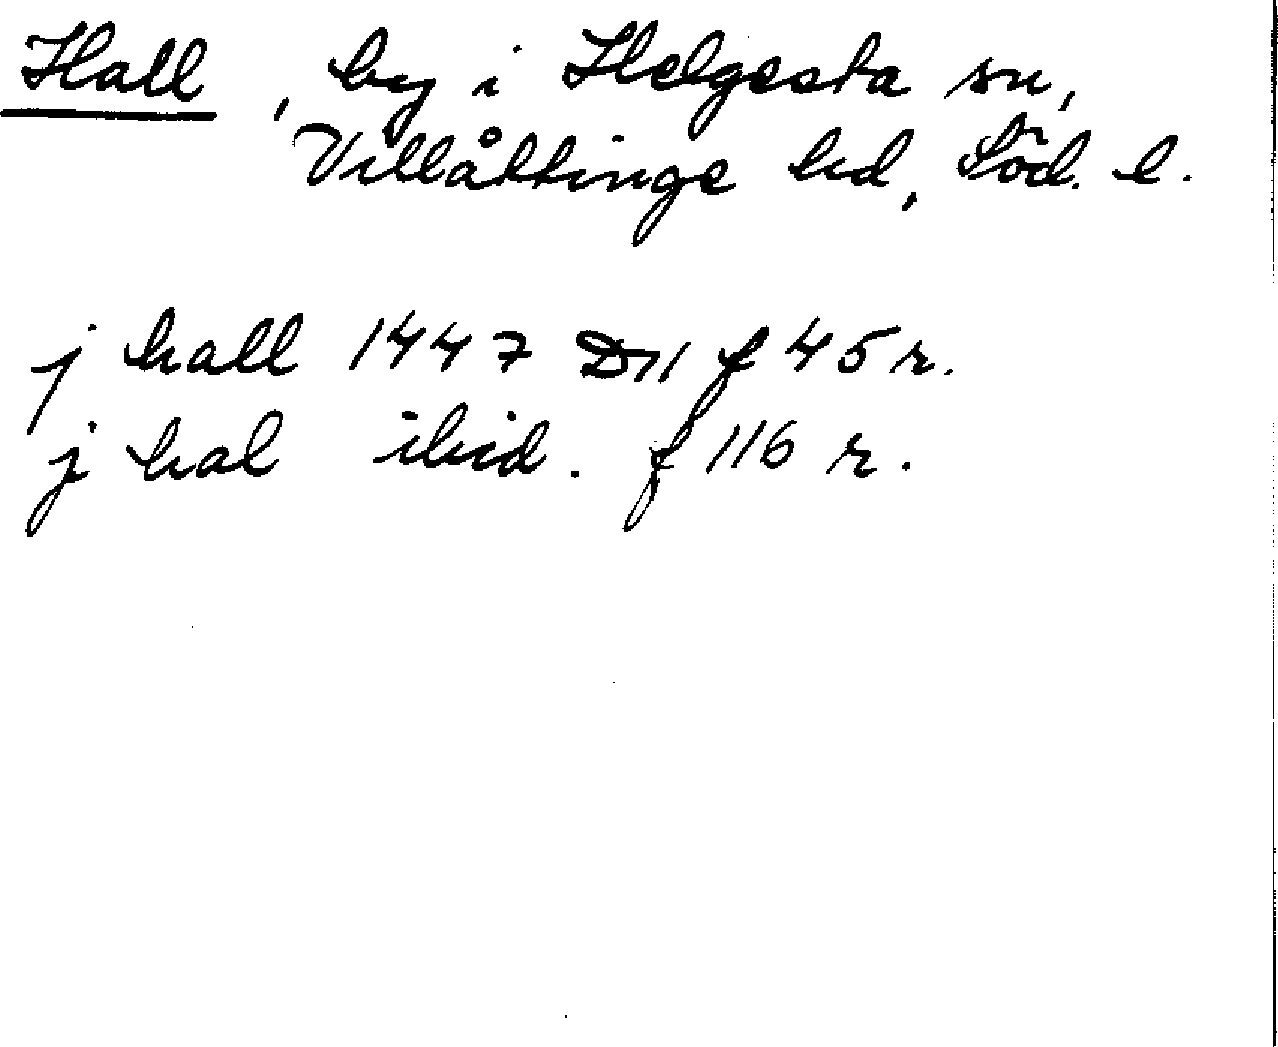 Hall, by i Helgesta sn,
Villåttinge hd, Söd. l.
j hall 1447 D11 f 45 r.
j hal ibid. f 116 r.